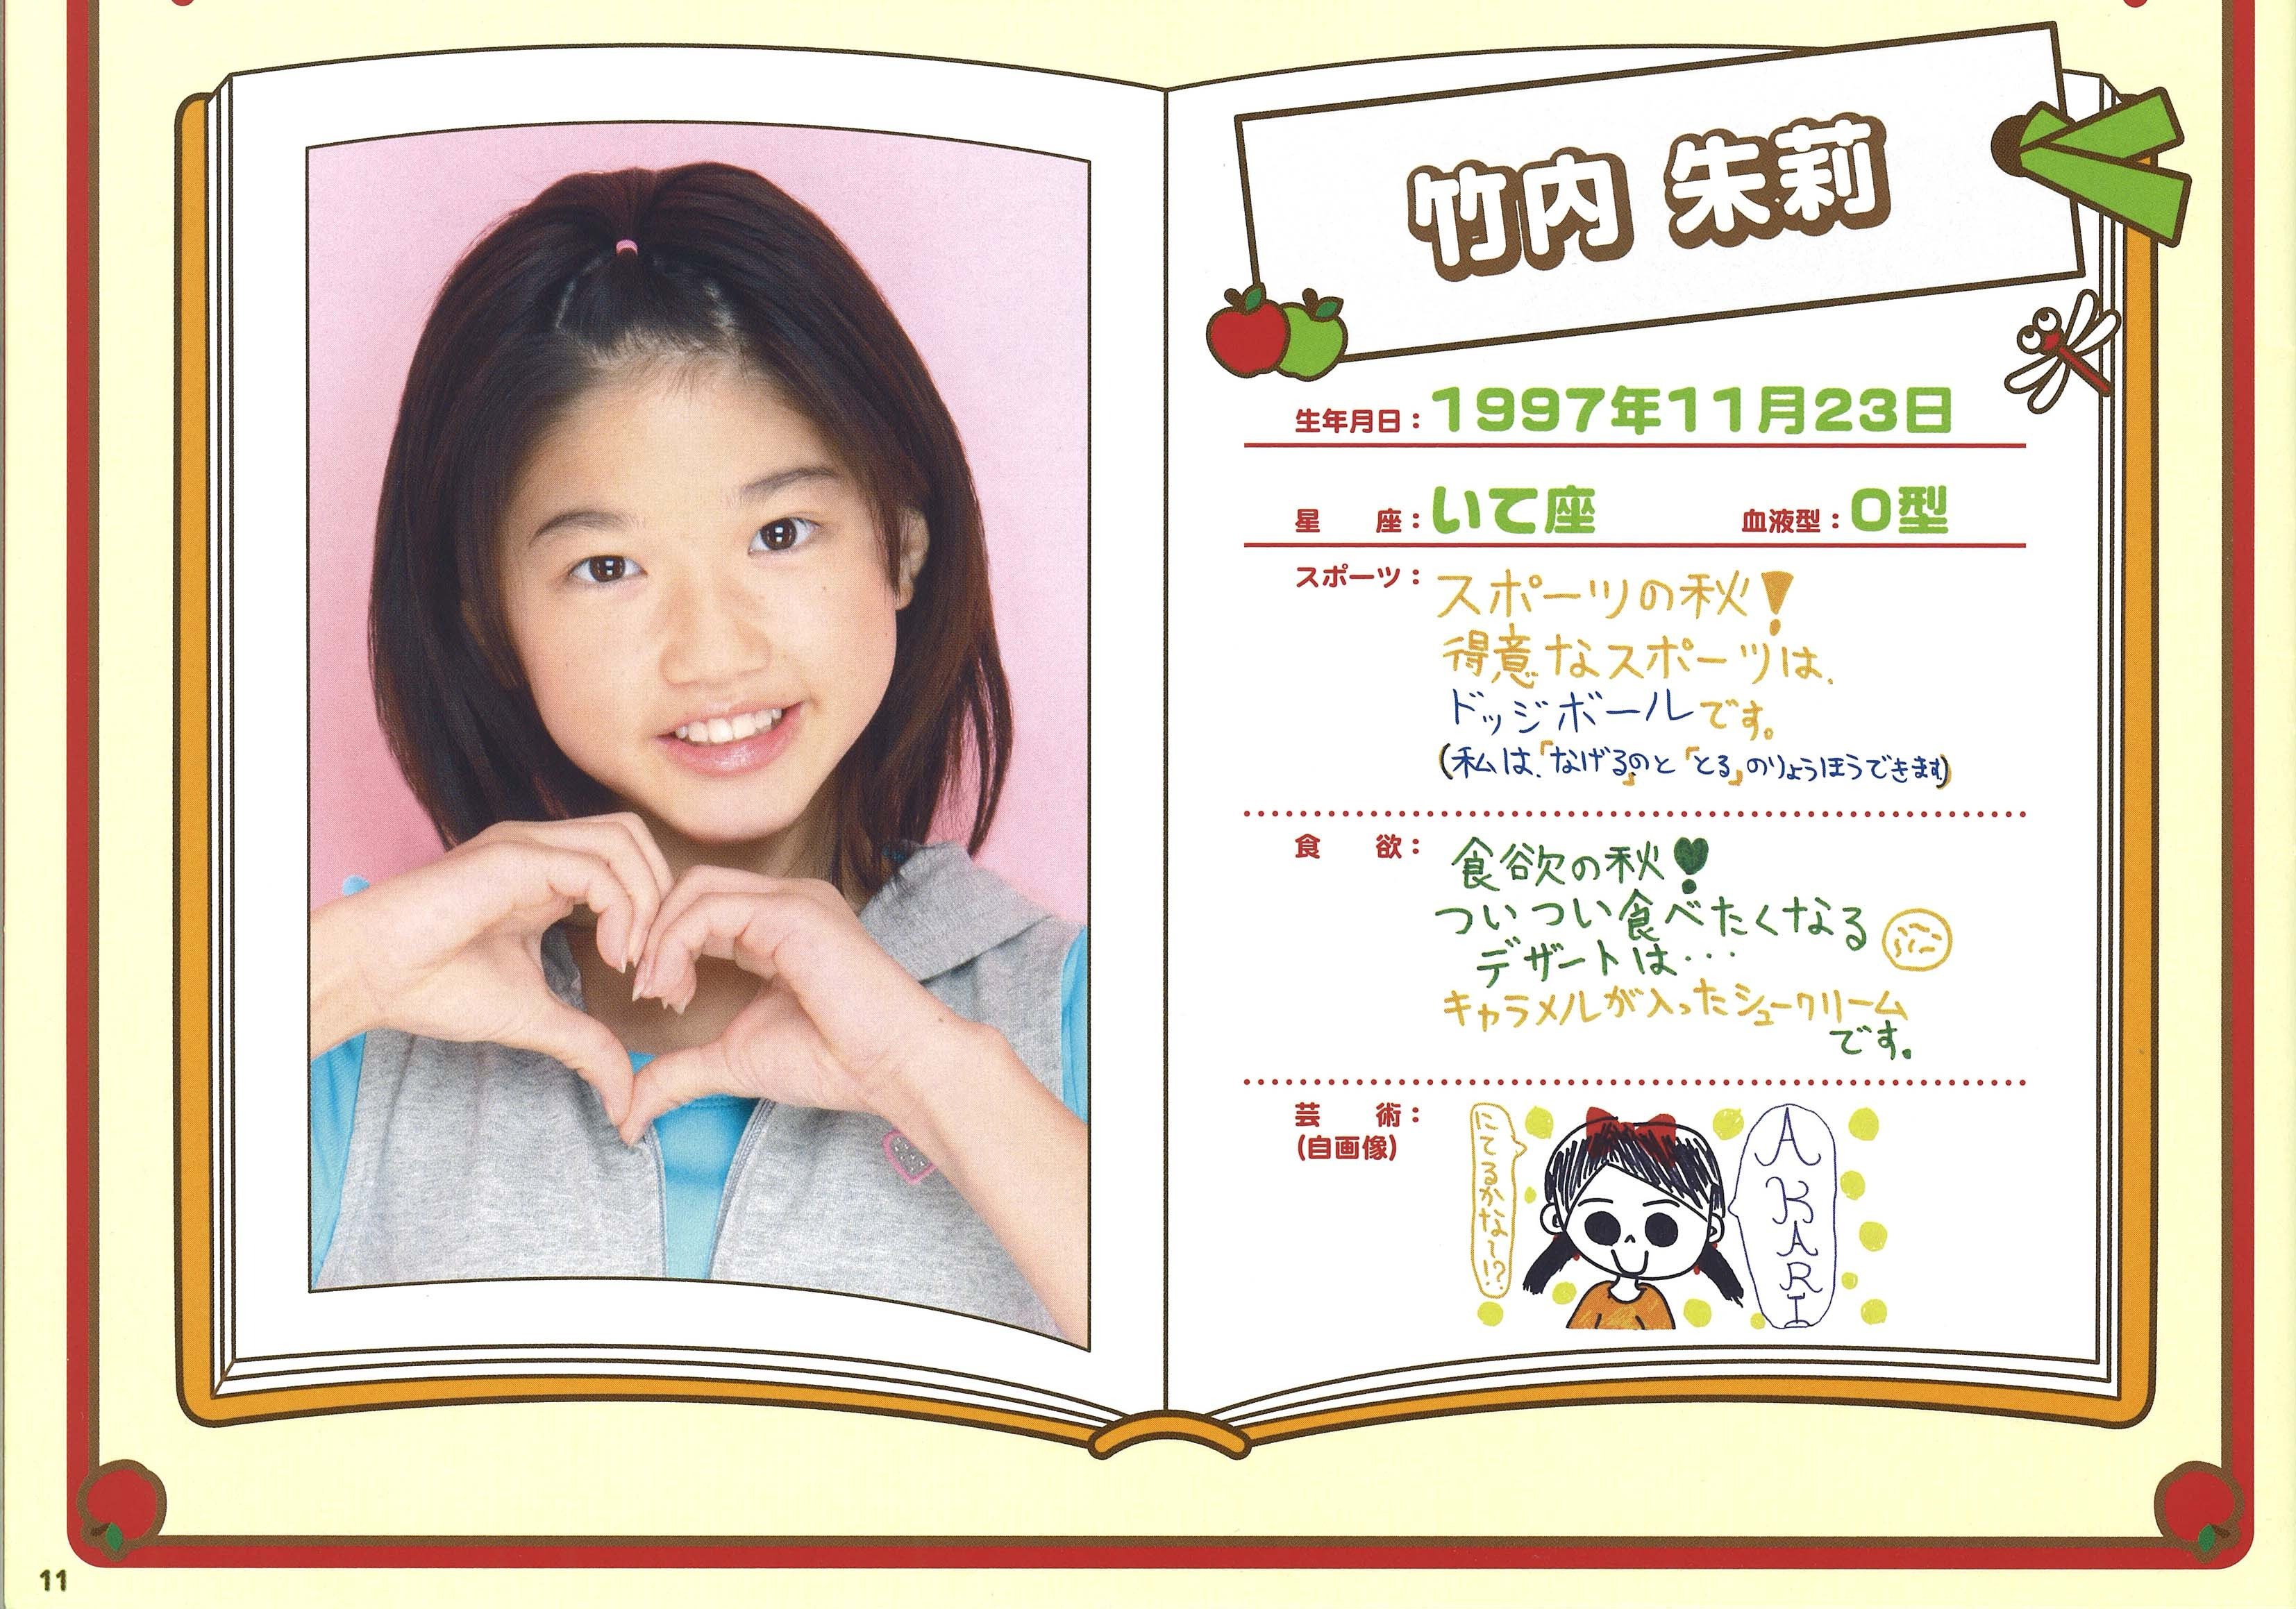 竹内 朱莉
生年月日：1997年11月23日
星　座：いて座　血液型：O型
スポーツ：スポーツの秋！
得意なスポーツは、
ドッジボールです。
(私は、「なげる」のと「とる」のりょうほうできます)
食　欲：食欲の秋！
ついつい食べたくなる
デザートは・・・
キャラメルが入ったシュークリーム
です。
芸　術：
(自画像)
にてるかな〜!?
AKARI
11